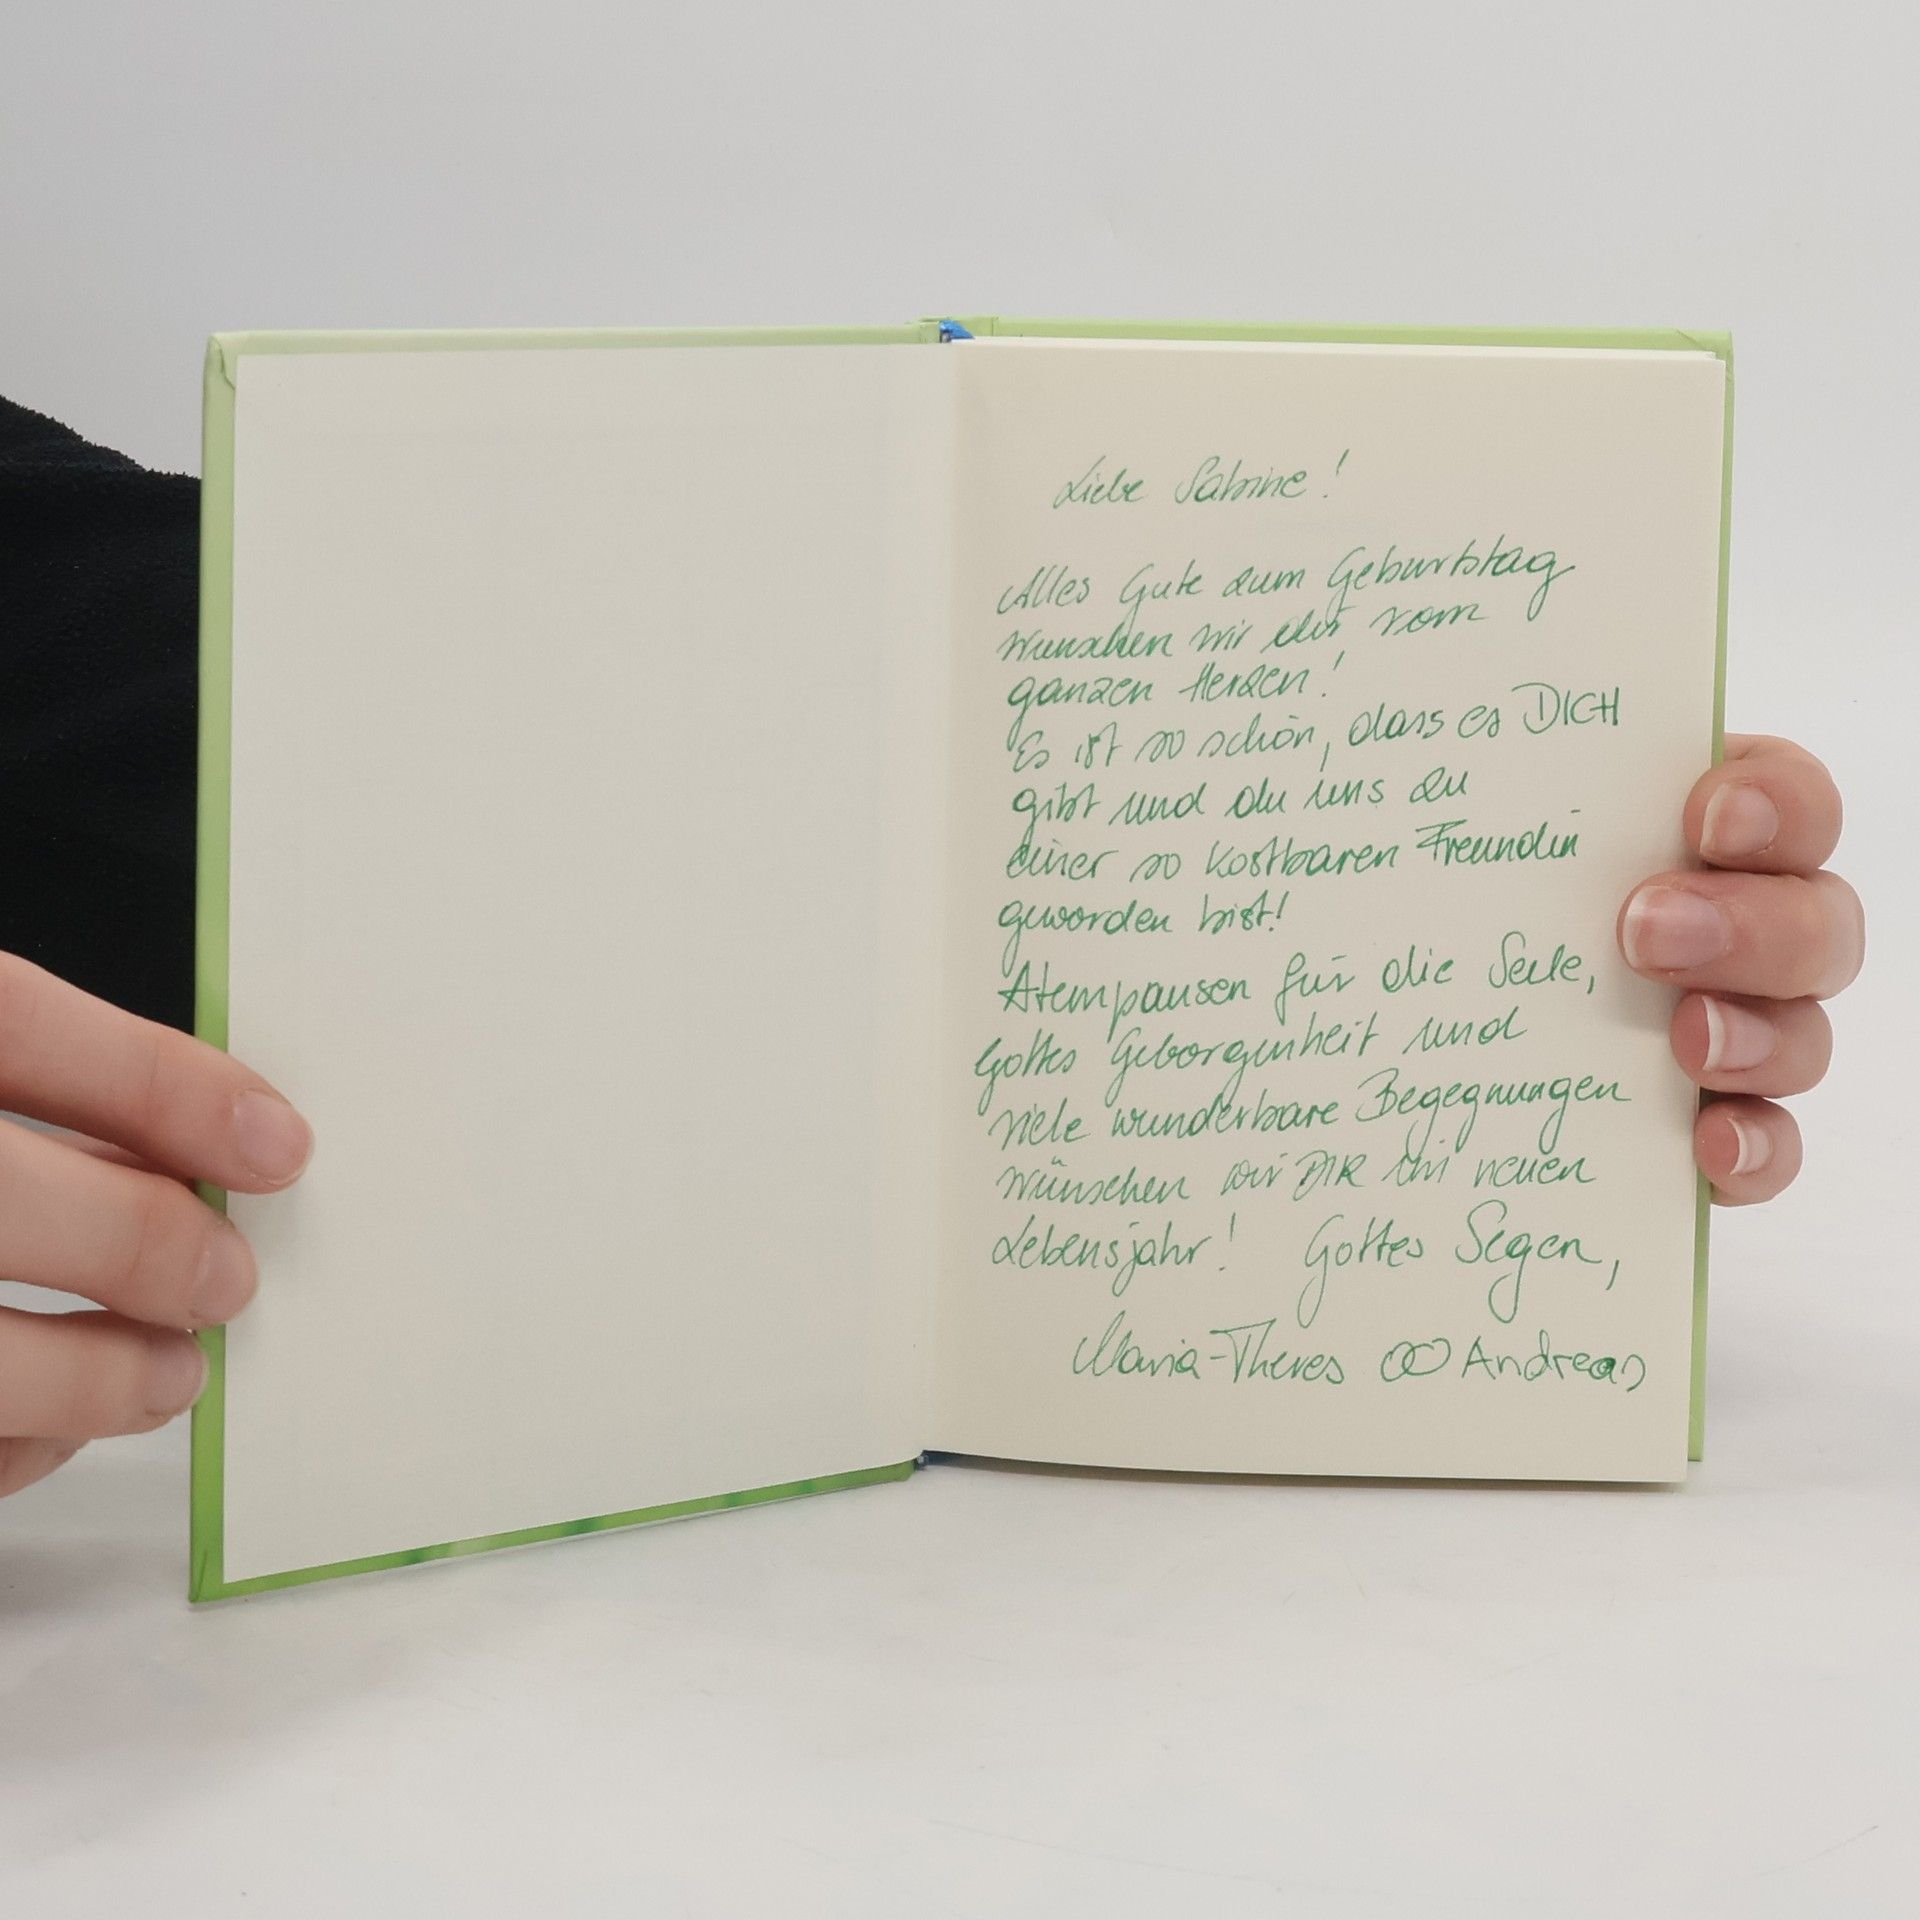 Liebe Sabine!
Alles Gute zum Geburtstag
wünschen wir dir vom
ganzen Herzen!
Es ist so schön, dass es DICH
gibt und du uns zu
einer so kostbaren Freundin
geworden bist!
Atempausen für die Seele,
Gottes Geborgenheit und
viele wunderbare Begegnungen
wünschen wir DIR im neuen
Lebensjahr! Gottes Segen,
Maria-Theres ⚭ Andreas